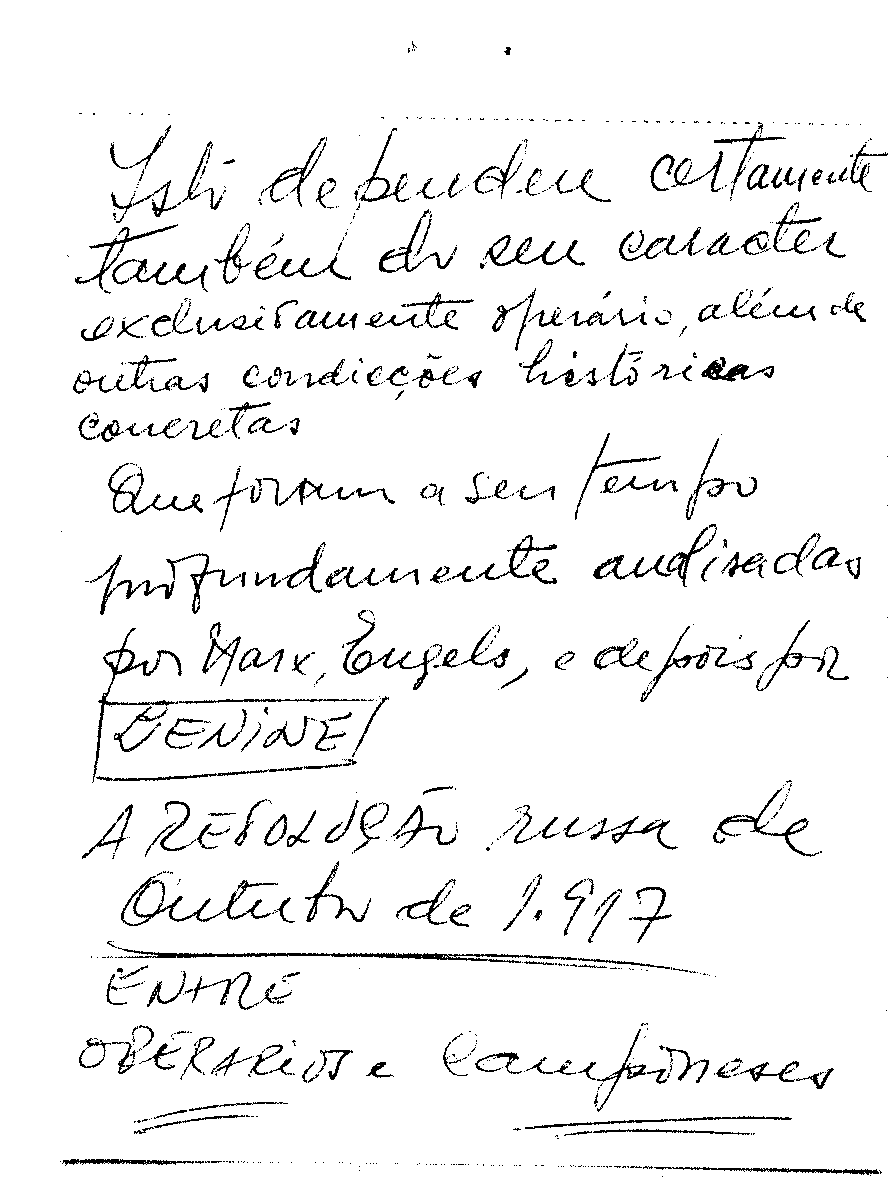 Isto dependeu certamente
também do seu caracter
exclusivamente operário, além de
outras condicções históricas
concretas
Que foram a seu tempo
profundamente analisadas
por Marx, Engels, e depois por
LENINE
A REVOLUÇÃO russa de
Outubro de 1.917
ENTRE
OPERÁRIOS e Camponeses